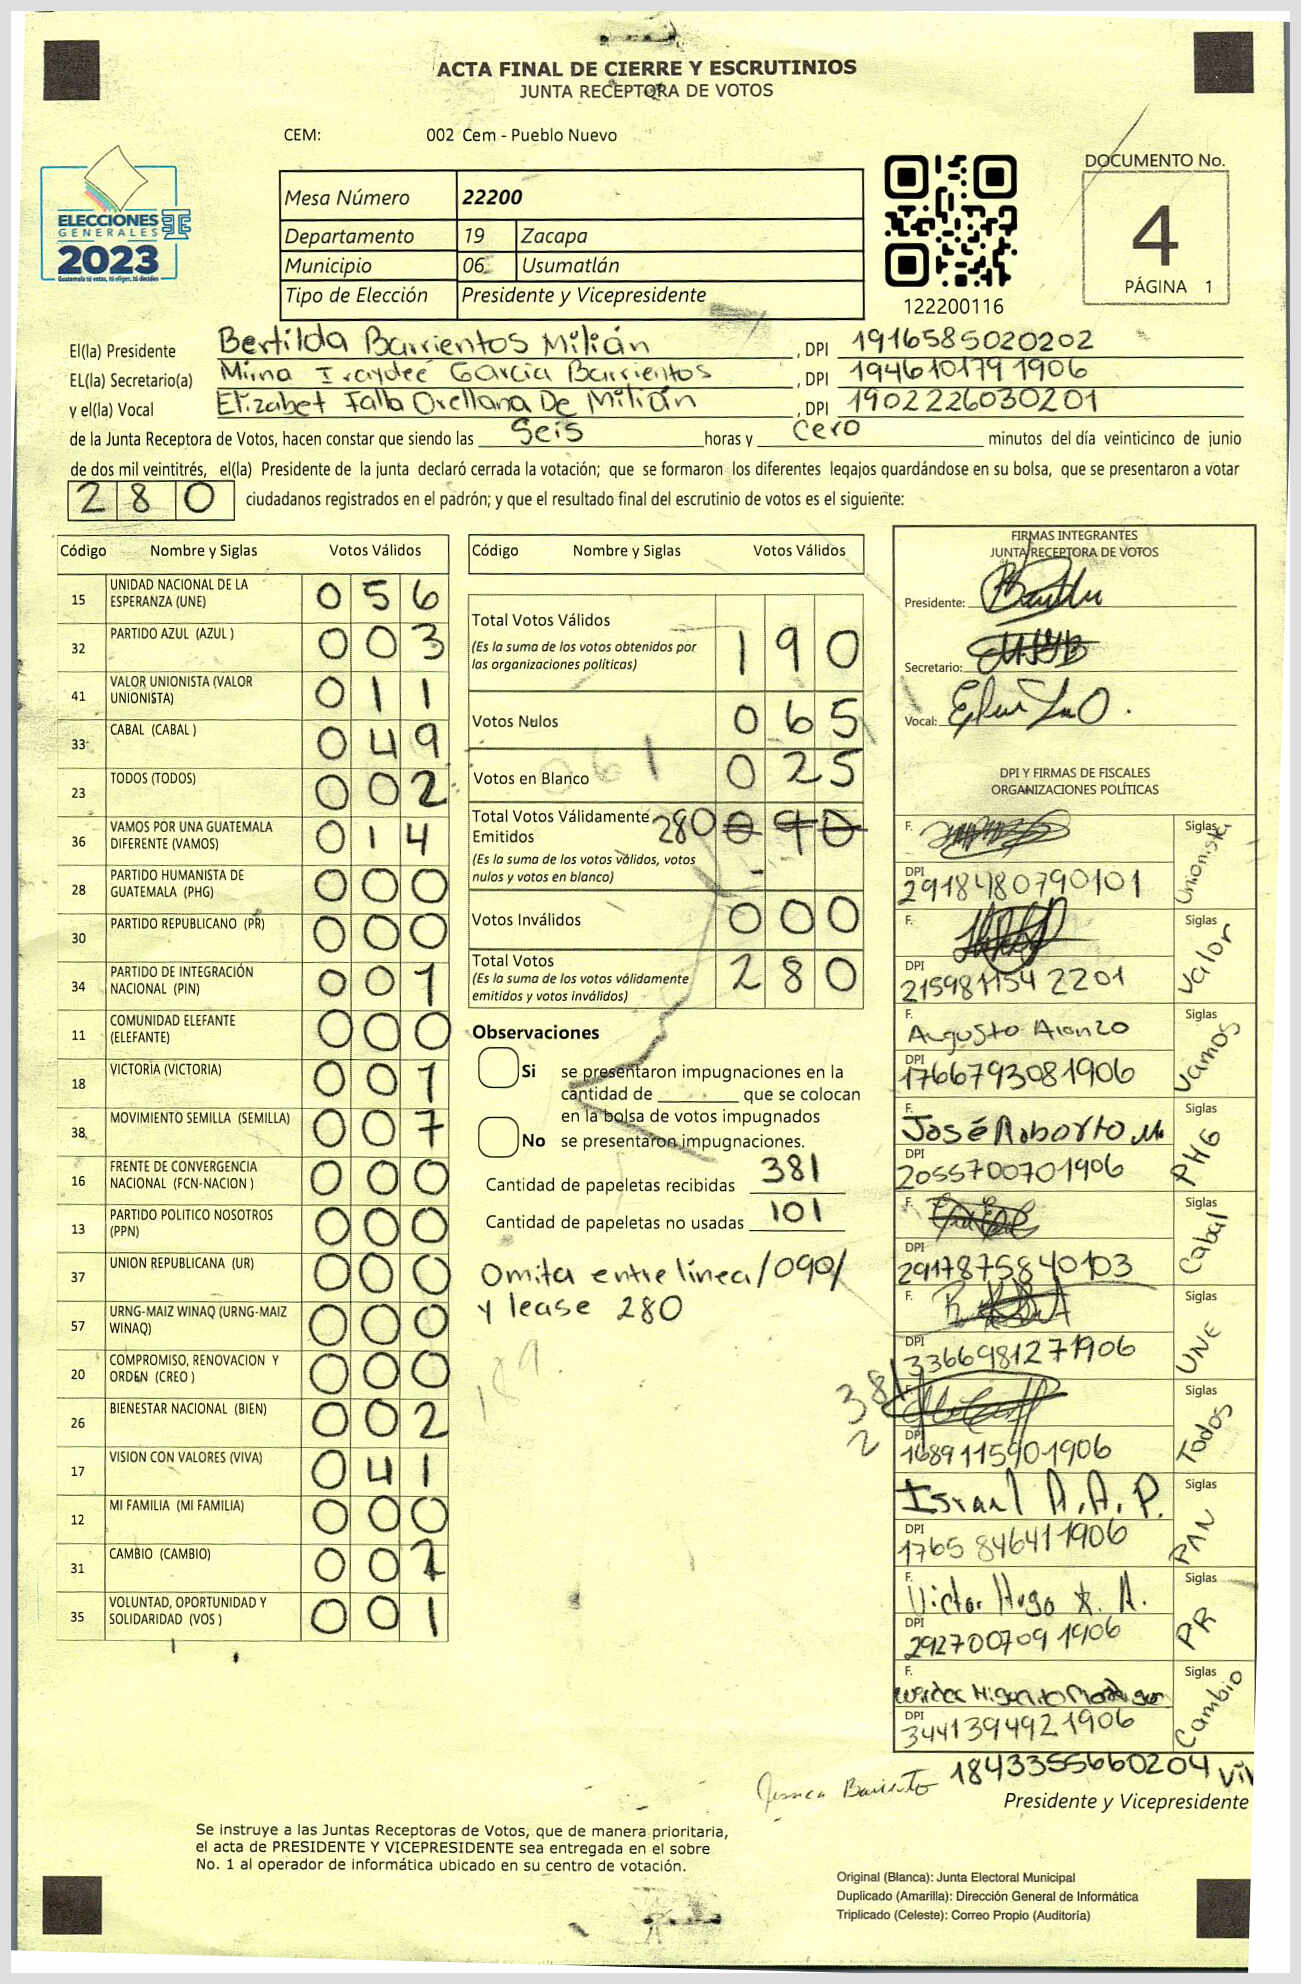 ACTA FINAL DE CIERRE Y ESCRUTINIOS
JUNTA RECEPTORA DE VOTOS
CEM: 002 Cem - Pueblo Nuevo
ELECCIONES
GENERALES
2023
Mesa Número 22200
Departamento 19 Zacapa
Municipio 06 Usumatlán
Tipo de Elección Presidente y Vicepresidente
122200116
DOCUMENTO No.
4
PÁGINA 1
El(la) Presidente Bertilda Barrientos Milián, DPI 1916585020202
EL(la) Secretario(a) Mirna Iraydeé García Barrientos, DPI 194610179 1906
y el(la) Vocal Elizabet Falla Orellana De Milián, DPI 1902226030201
de la Junta Receptora de Votos, hacen constar que siendo las Seis horas y cero minutos del día veinticinco de junio
de dos mil veintitrés, el(la) Presidente de la junta declaró cerrada la votación; que se formaron los diferentes legajos guardándose en su bolsa, que se presentaron a votar
280 ciudadanos registrados en el padrón; y que el resultado final del escrutinio de votos es el siguiente:
Código Nombre y Siglas Votos Válidos
15 UNIDAD NACIONAL DE LA ESPERANZA (UNE) 056
32 PARTIDO AZUL (AZUL ) 003
41 VALOR UNIONISTA (VALOR UNIONISTA) 011
33 CABAL (CABAL ) 049
23 TODOS (TODOS) 002
36 VAMOS POR UNA GUATEMALA DIFERENTE (VAMOS) 014
28 PARTIDO HUMANISTA DE GUATEMALA (PHG) 000
30 PARTIDO REPUBLICANO (PR) 000
34 PARTIDO DE INTEGRACIÓN NACIONAL (PIN) 001
11 COMUNIDAD ELEFANTE (ELEFANTE) 000
18 VICTORIA (VICTORIA) 001
38 MOVIMIENTO SEMILLA (SEMILLA) 007
16 FRENTE DE CONVERGENCIA NACIONAL (FCN-NACION ) 000
13 PARTIDO POLITICO NOSOTROS (PPN) 000
37 UNION REPUBLICANA (UR) 000
57 URNG-MAIZ WINAQ (URNG-MAIZ WINAQ) 000
20 COMPROMISO, RENOVACION Y ORDEN (CREO ) 000
26 BIENESTAR NACIONAL (BIEN) 002
17 VISION CON VALORES (VIVA) 041
12 MI FAMILIA (MI FAMILIA) 000
31 CAMBIO (CAMBIO) 002
35 VOLUNTAD, OPORTUNIDAD Y SOLIDARIDAD (VOS ) 001
Código Nombre y Siglas Votos Válidos
Total Votos Válidos 190
(Es la suma de los votos obtenidos por
las organizaciones políticas)
Votos Nulos 065
Votos en Blanco 025
Total Votos Válidamente Emitidos 280 090
(Es la suma de los votos válidos, votos
nulos y votos en blanco)
Votos Inválidos 000
Total Votos 280
(Es la suma de los votos válidamente
emitidos y votos inválidos)
Observaciones
Si se presentaron impugnaciones en la
cantidad de ________ que se colocan
en la bolsa de votos impugnados
No se presentaron impugnaciones.
Cantidad de papeletas recibidas 381
Cantidad de papeletas no usadas 101
Omita entre línea/090/
y lease 280
FIRMAS INTEGRANTES
JUNTA RECEPTORA DE VOTOS
Presidente:
Secretario:
Vocal:
DPI Y FIRMAS DE FISCALES
ORGANIZACIONES POLÍTICAS
F. Siglas Unionista
DPI 2918480790101
F. Siglas Valor
DPI 215981154 2201
F. Augusto Alonzo Siglas Vamos
DPI 1766793081906
F. José Roberto M Siglas PHG
DPI 2055700701906
F. Siglas Cabal
DPI 2917875840103
F. Siglas UNE
DPI 3366981271906
381
2
F. Siglas Todos
DPI 1689115901906
F. Israel A. A. P. Siglas PAN
DPI 1765 846411906
F. Victor Hugo A. Siglas PR
DPI 292700709 1906
F. Siglas Cambio
DPI 3441394921906
1843355660204 Viv
Presidente y Vicepresidente
Se instruye a las Juntas Receptoras de Votos, que de manera prioritaria,
el acta de PRESIDENTE Y VICEPRESIDENTE sea entregada en el sobre
No. 1 al operador de informática ubicado en su centro de votación.
Original (Blanca): Junta Electoral Municipal
Duplicado (Amarilla): Dirección General de Informática
Triplicado (Celeste): Correo Propio (Auditoría)